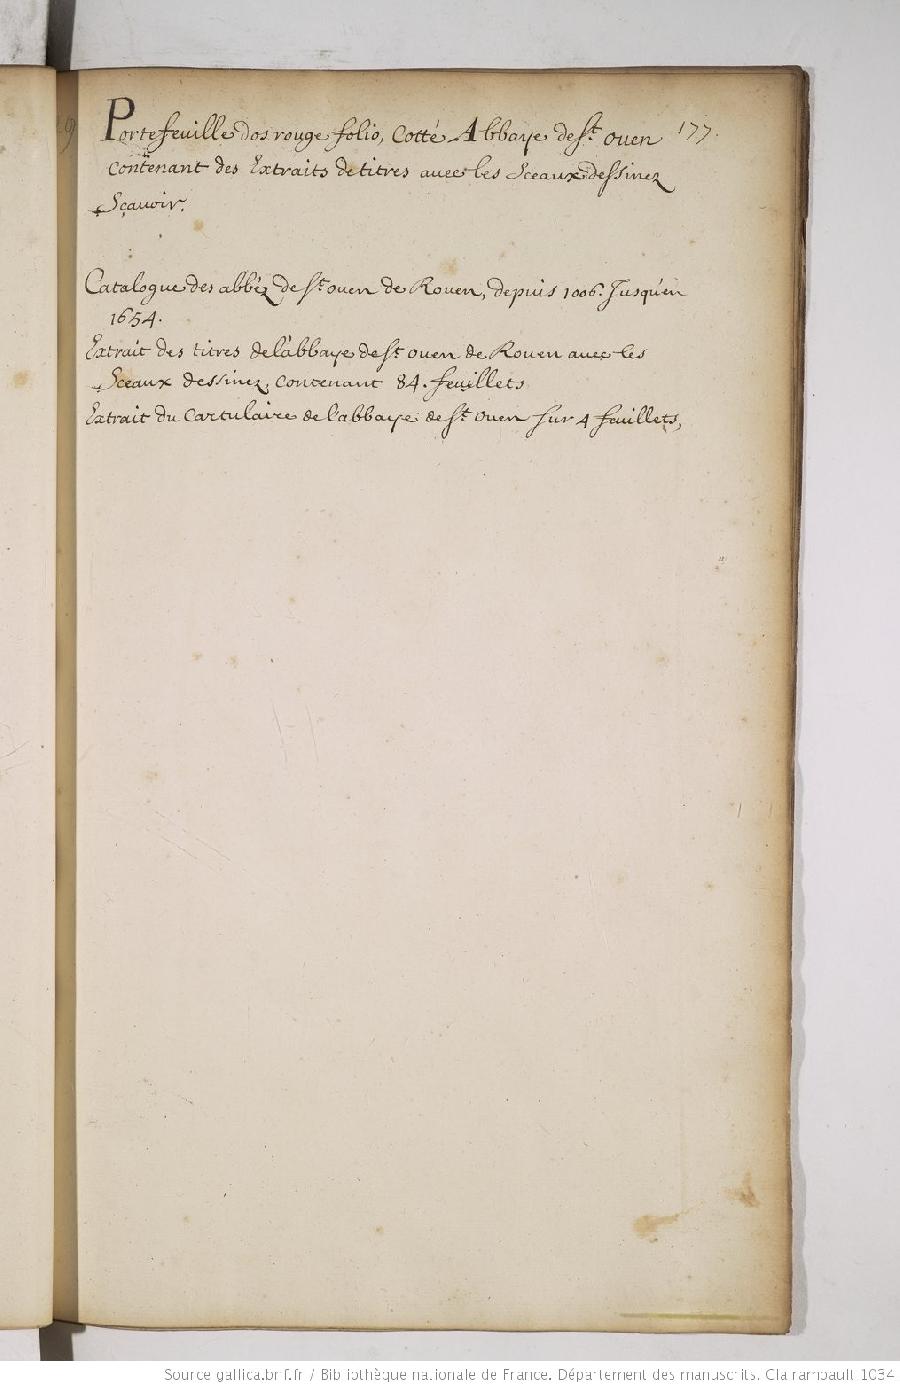 Portefeuille dos rouge folio, Cotté Abbaye de St. ouen 177.
Contenant des Extraits de titres avec les Sceaux dessinez
Sçavoir.
Catalogue des abbéz de St. ouen de Rouen, depuis 1006. Jusqu'en
1654.
Extrait des titres de l'abbaye de St ouen de Rouen avec les
Sceaux dessinez, contenant 84. feuillets
Extrait du Cartulaire de l'abbaye de St. ouen sur 4 feuillets,
Source gallica.bnf.fr / Bibliothèque nationale de France. Département des manuscrits. Clairambault 1034